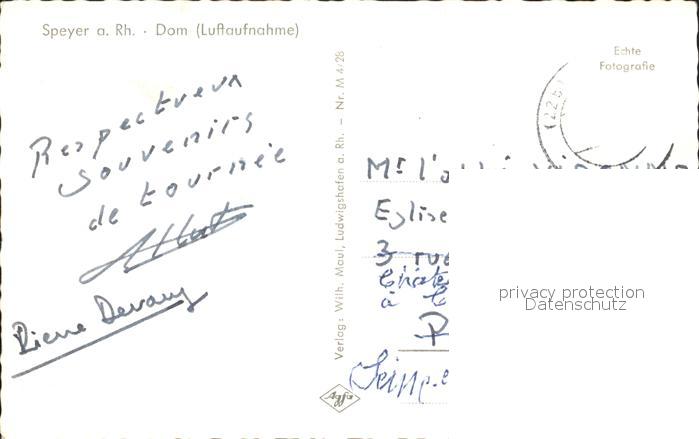 Speyer a. Rh. · Dom (Luftaufnahme)
Echte
Fotografie
Respectueux
souvenirs
de tournée
Albert
Pierre Devany
Verlag: Wilh. Maul, Ludwigshafen a. Rh. – Nr. M 4/28
Agfa
Mr l'
Eglise
3 rue
à
privacy protection
Datenschutz